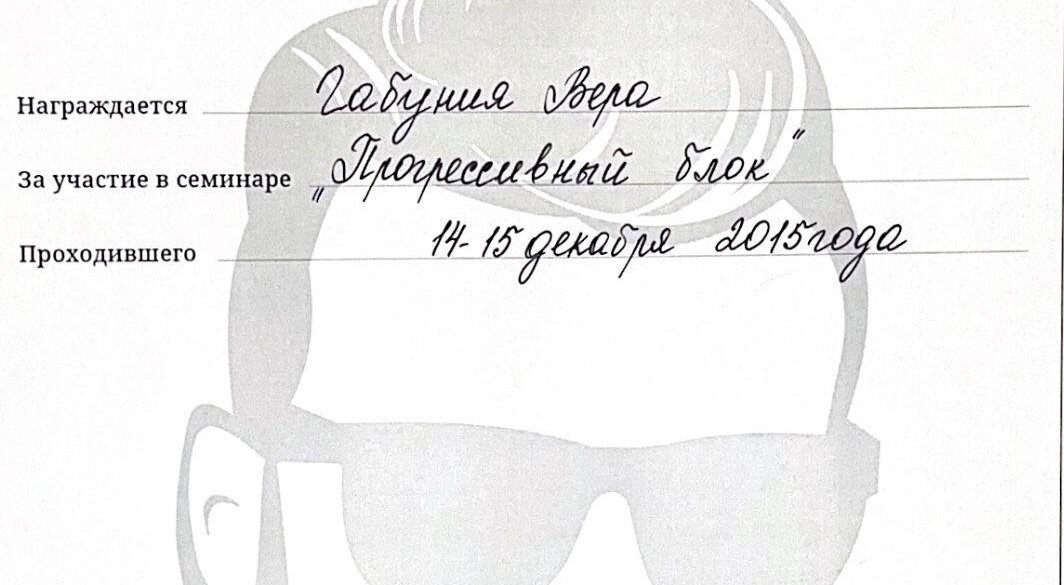 Награждается Габуния Вера
За участие в семинаре „Прогрессивный блок"
Проходившего 14-15 декабря 2015 года